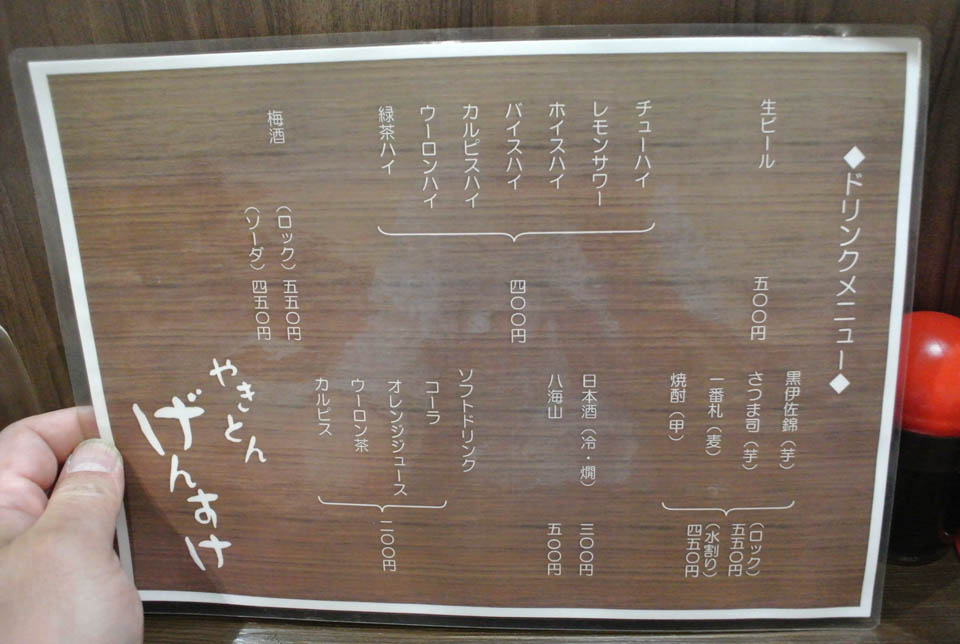 ◆ドリンクメニュー◆
生ビール 五〇〇円
チューハイ
レモンサワー
ホイスハイ
バイスハイ
カルピスハイ
ウーロンハイ
緑茶ハイ
四〇〇円
梅酒
（ロック）五五〇円
（ソーダ）四五〇円
黒伊佐錦（芋）
さつま司（芋）
一番札（麦）
焼酎（甲）
（ロック）
五五〇円
（水割り）
四五〇円
日本酒（冷・燗） 三〇〇円
八海山 五〇〇円
ソフトドリンク
コーラ
オレンジジュース
ウーロン茶
カルピス
二〇〇円
やきとん
げんすけ